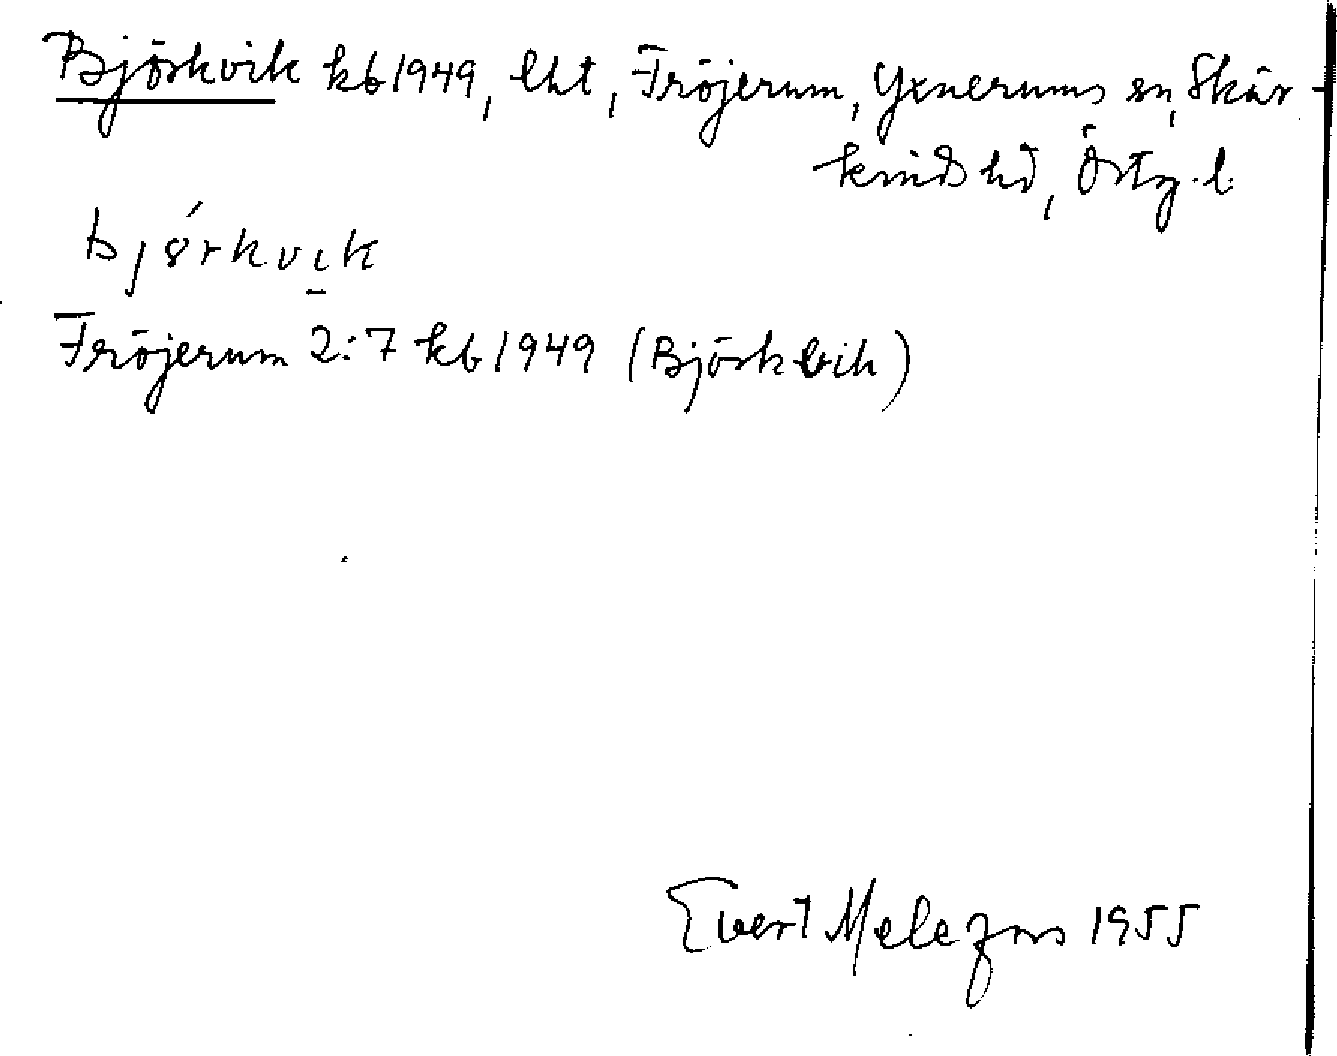 Björkvik kb 1949, lht, Fröjerum, Yxnerums sn, Skär-
kinds hd, Östg. l.
bjǿrkvik
Fröjerum 2:7 kb 1949 (Björkvik)
Evert Melefors 1955